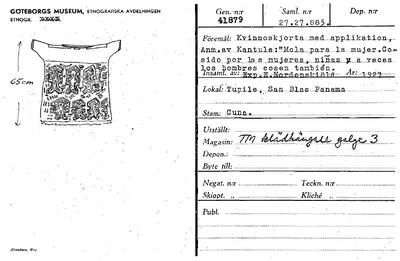 GÖTEBORGS MUSEUM, ETNOGRAFISKA AVDELNINGEN
ETNOGR.
65cm
Gen. n:r
41879
Saml. n:r
27.27.885.
Dep. n:r
Föremål: Kvinnoskjorta med applikation,
Anm.av Kantule:"Mola para la mujer.Co-
sido por las mujeres, niñas y a veces
los hombres cosen tanbién.
Insaml. av: Exp.E.Nordenskiöld År: 1927
Lokal: Tupile, San Blas Panama
Stam: Cuna.
Utställt:
Magasin: TM klädhängare galge 3
Depon.:
Byte till:
Negat. n:r Teckn. n:r
Skiopt. „ Kliché „
Publ.